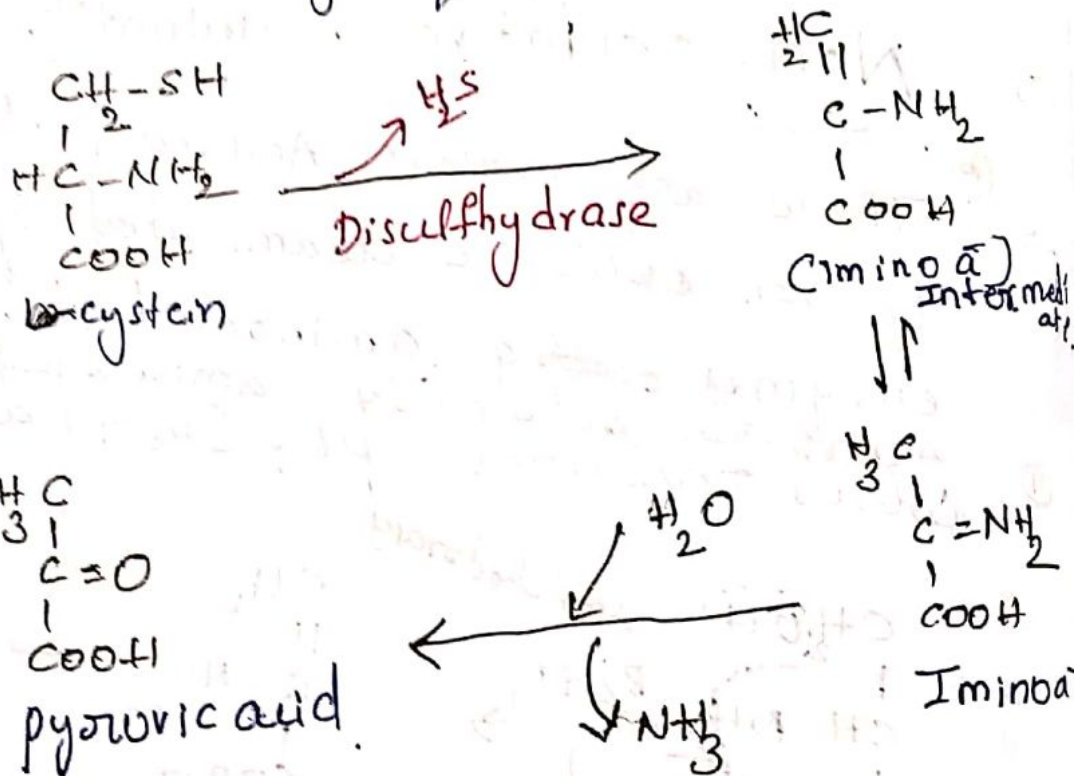 CH2-SH
HC-NH2
COOH
L-cystein
H2S
Disulfhydrase
H2C
C-NH2
COOH
(Imino ā)
Intermedi
ate.
H3C
C=NH2
COOH
Iminoa
H2O
NH3
H3C
C=O
COOH
pyruvic acid.